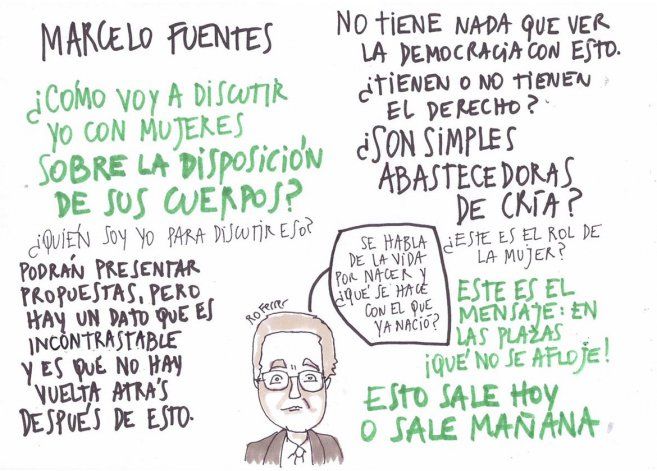 MARCELO FUENTES
¿CÓMO VOY A DISCUTIR
YO CON MUJERES
SOBRE LA DISPOSICIÓN
DE SUS CUERPOS?
¿QUIÉN SOY YO PARA DISCUTIR ESO?
PODRÁN PRESENTAR
PROPUESTAS, PERO
HAY UN DATO QUE ES
INCONTRASTABLE
Y ES QUE NO HAY
VUELTA ATRÁS
DESPUÉS DE ESTO.
NO TIENE NADA QUE VER
LA DEMOCRACIA CON ESTO.
¿TIENEN O NO TIENEN
EL DERECHO?
¿SON SIMPLES
ABASTECEDORAS
DE CRÍA?
¿ESTE ES EL ROL DE
LA MUJER?
SE HABLA
DE LA VIDA
POR NACER Y
¿QUÉ SE HACE
CON EL QUE
YA NACIÓ?
ESTE ES EL
MENSAJE: EN
LAS PLAZAS
¡QUÉ NO SE AFLOJE!
ESTO SALE HOY
O SALE MAÑANA
Ro Ferrer